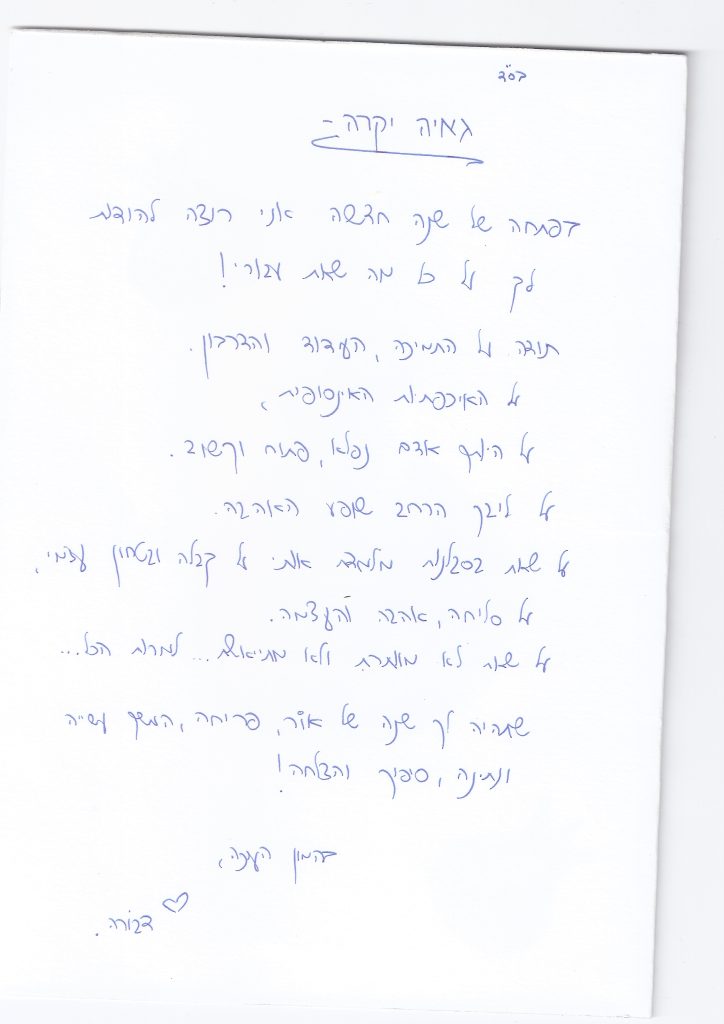 בס"ד
גאיה יקרה -
בפתחה של שנה חדשה אני רוצה להודות
לך על כל מה שאת עבורי!
תודה על התמיכה, העידוד והדרבון.
על האיכפתיות האינסופית,
על היותך אדם נפלא, פתוח וקשוב.
על ליבך הרחב שופע האהבה.
על שאת בסבלנות מלמדת אותי על קבלה ובטחון עצמי,
על סליחה, אהבה והעצמה.
על שאת לא מוותרת ולא מתייאשת... למרות הכל...
שתהיה לך שנה של אור, פריחה, המשך עשייה
ונתינה, סיפוק והצלחה!
בהמון הערכה,
דבורה.